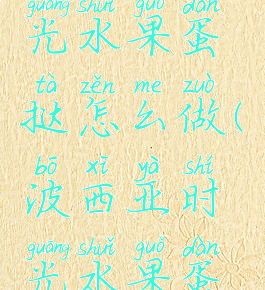 guāng shuǐ guǒ dàn
光水果蛋
tà zěn me zuò
挞怎么做(
bō xī yà shí
波西亚时
guāng shuǐ guǒ dàn
光水果蛋